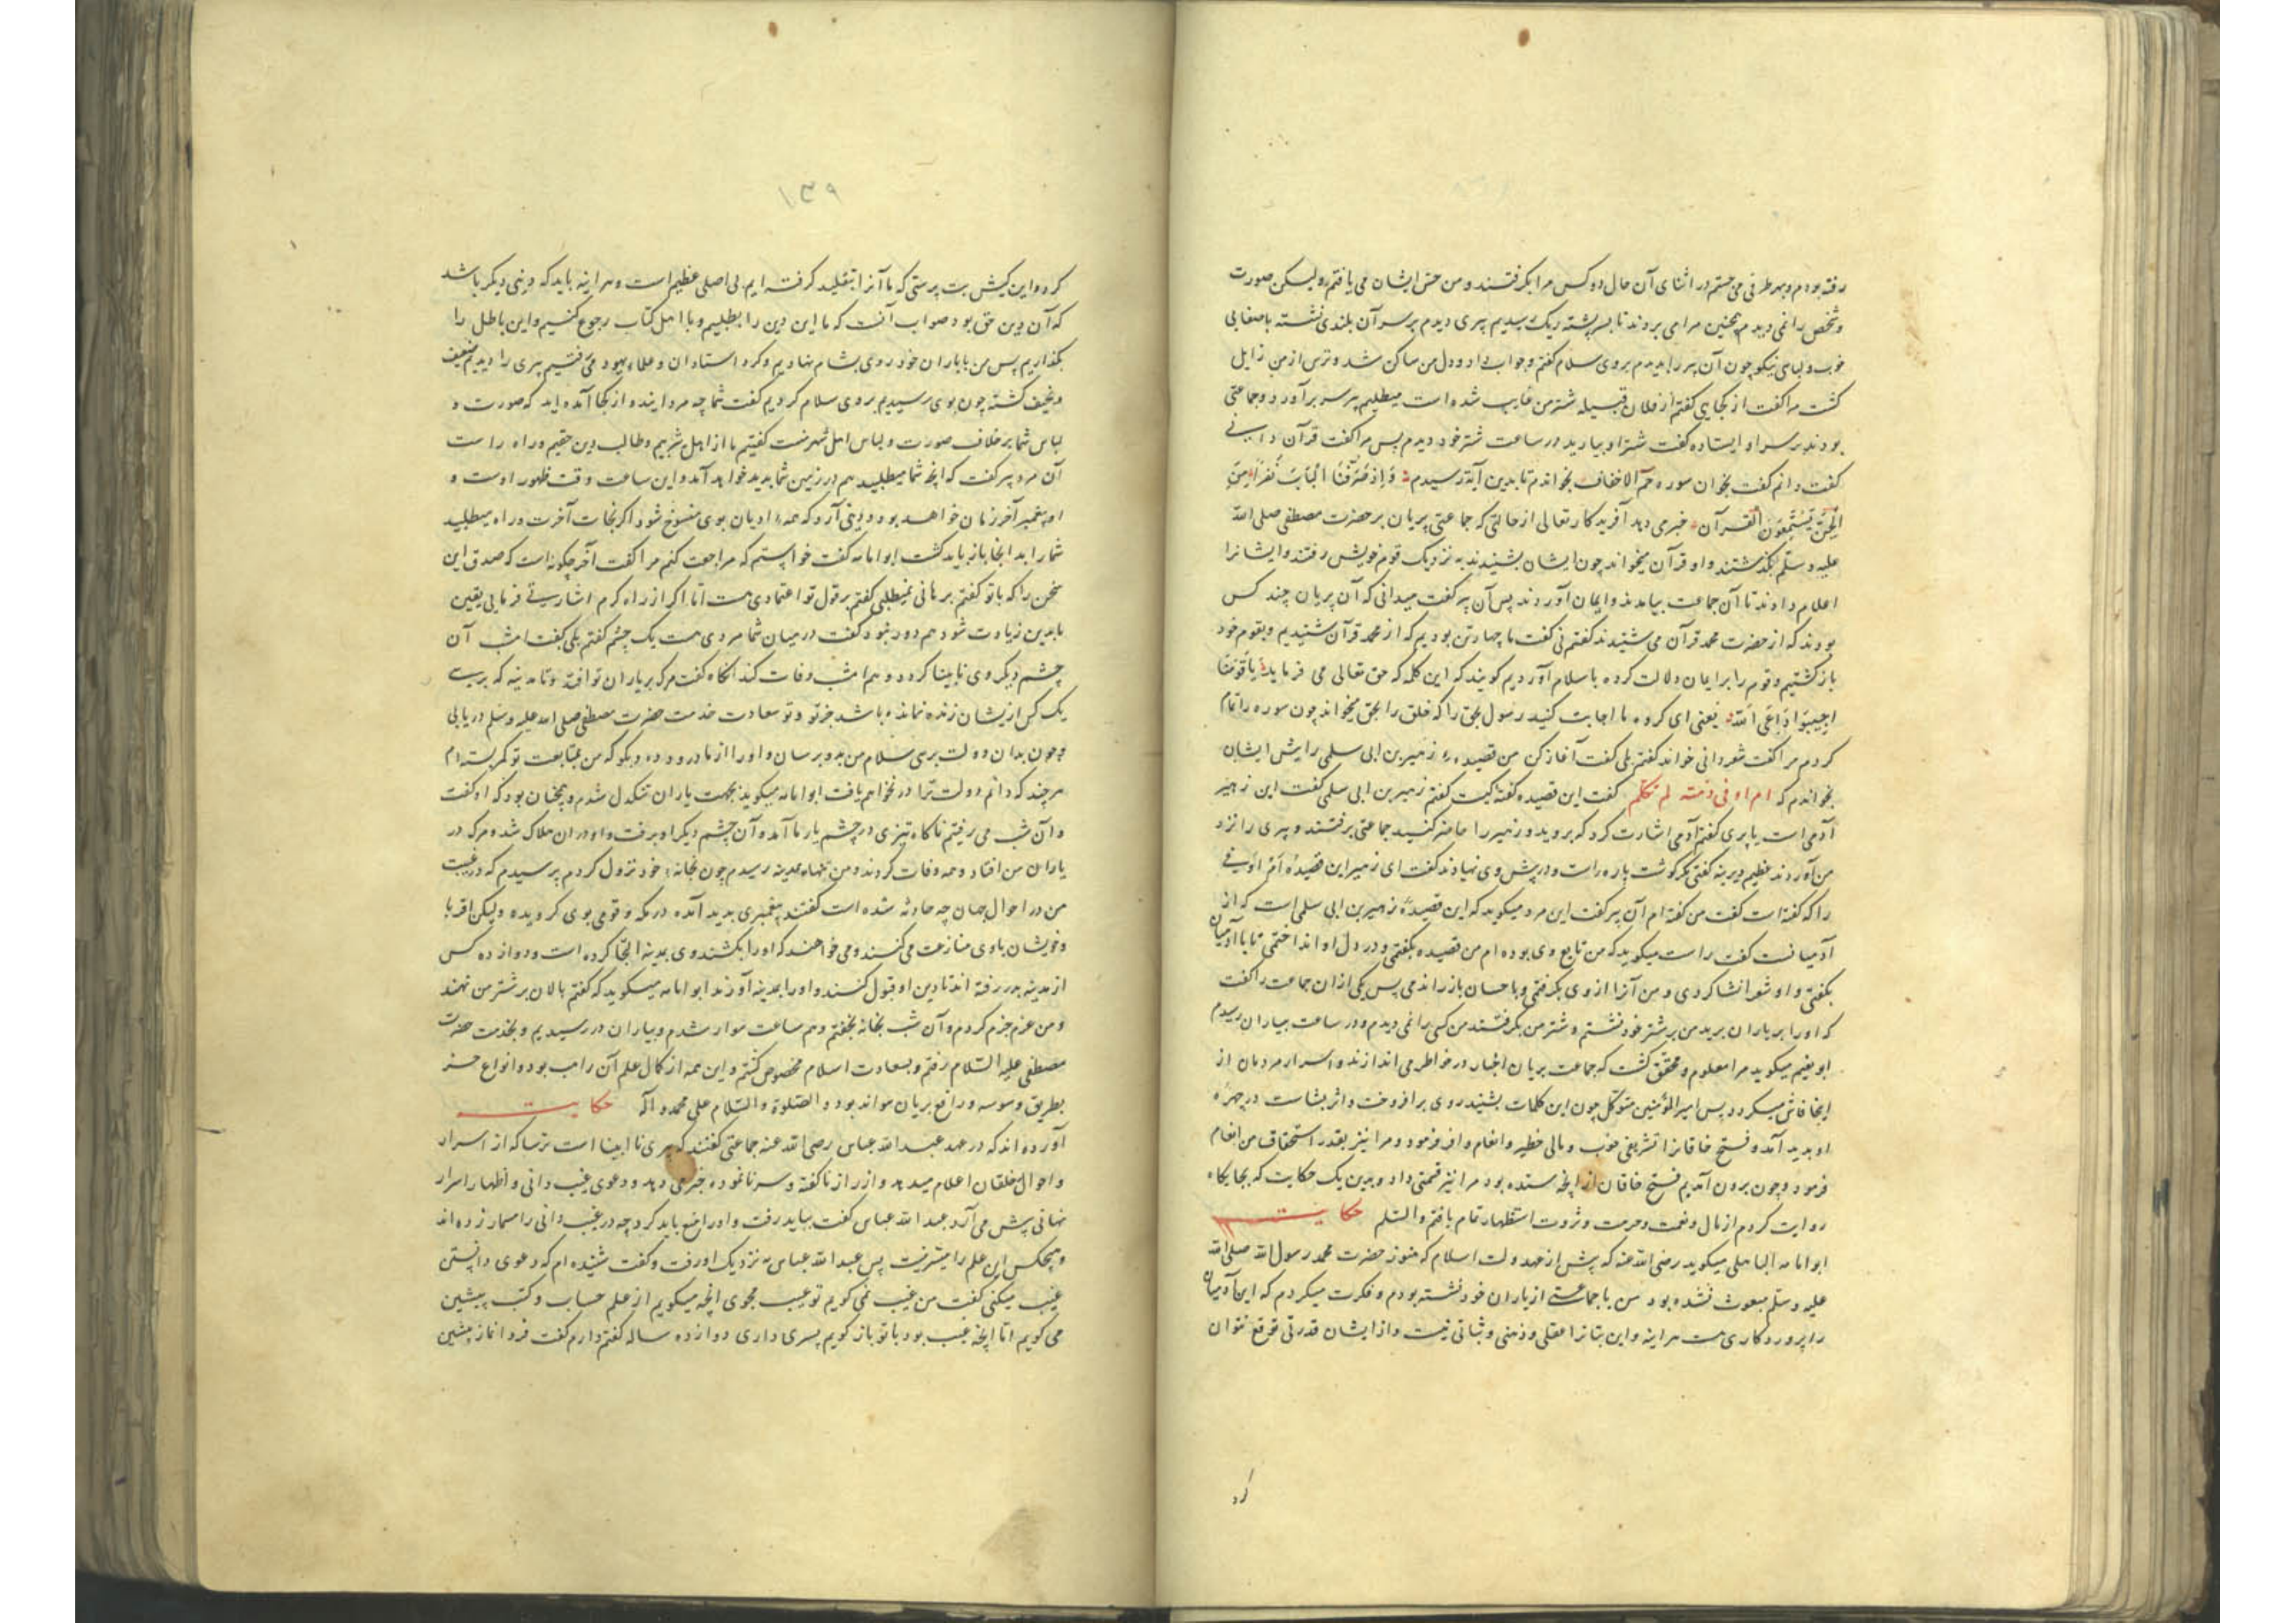 رفته بودم و بهر طرفی می جستم در اثنای آن حال دو کس مرا بگرفتند و من حس ایشان می یافتم ولیکن صورت
و شخص را نمی دیدم همچنین مرا می بردند تا بسر پشته ریک رسیدیم پیری دیدم بر سر آن بلندی نشسته با صفایی
خوب و لباسی نیکو چون آن پیر را بدیدم بروی سلام گفتم و جواب داد و دل من ساکن شد و ترس از من زایل
گشت مرا گفت از کجایی گفتم از فلان قبیله شتر من غایب شده است میطلبم پیر سر برآورد و جماعتی
بودند بر سر او ایستاده گفت شتر او بیارید در ساعت شتر خود دیدم پس مرا گفت قرآن دانی
گفت دانم گفت بخوان سوره حم الاحقاف بخواندم تا بدین آیة رسیدم وَاِذْ صَرَفْنَا اِلَیْکَ نَفَرًا مِنَ
الْجِنِّ یَسْتَمِعُونَ الْقُرآن خبری دهد آفریدکار تعالی از حالتی که جماعتی پریان بر حضرت مصطفی صلی الله
علیه وسلّم بگذشتند و او قرآن میخواند چون ایشان بشنیدند به نزدیک قوم خویش رفتند و ایشانرا
اعلام دادند تا آن جماعت بیامدند و ایمان آوردند پس آن پیر گفت میدانی که آن پریان چند کس
بودند که از حضرت محمد قرآن می شنیدند گفتم نی گفت ما چهار تن بودیم که از محمد قرآن شنیدیم و بقوم خود
بازگشتیم و قوم را بر ایمان دلالت کرده باسلام آوردیم گویند که این کلمه که حق تعالی می فرماید یا قَومَنَا
اَجِیبُوا دَاعِیَ اللّه یَعنی ای گروه ما اجابت کنید رسول بحق را که خلق را بحق میخواند چون سوره را تمام
کردم مرا گفت شعر دانی خواند گفتم بلی گفت آغاز کن من قصیده زهیر بن ابی سلمی را پیش ایشان
بخواندم که ام اوفی دمنه لم تکلم گفت این قصیده گفته کیست گفتم زهیر بن ابی سلمی گفت این زهیر
آدمی است یا پری گفتم آدمی اشارت کرد که بروید و زهیر را حاضر کنید جماعتی برفتند و پیری را نزد
من آوردند عظیم دیرینه گفتی مگر گوشت پاره است و در پیش وی نهادند گفت ای زهیر این قصیدهٔ اُمّ اَوفی
را که گفته است گفت من گفته ام آن پیر گفت این مرد میگوید که این قصیدهٔ زهیر بن ابی سلمی است که از
آدمیانست گفت راست میگوید که من تابع وی بوده ام من قصیده بگفتمی و در دل او انداختمی تا با آدمیان
بگفتی و او شعر انشا کردی و من آنرا از وی بگرفتمی و با حسان باز راندمی پس یکی از آن جماعت را گفت
که او را بر یاران برید من بر شتر خود نشستم و شتر من بگرفتند من کسی را نمی دیدم و در ساعت بیاران رسیدم
میگوید مرا معلوم و محقق گشت که جماعت پریان اخبار در خواطر می اندازند و اسرار مردمان از
اینجا فاش میگردد پس امیر المؤمنین متوکّل چون این کلمات بشنید روی برافروخت و اثر بشاشت در چهرهٔ
او پدید آمد و فتح خاقانرا تشریفی خوب و مالی خطیر و انعام وافر فرمود و مرا نیز بقدر استحقاق من انعام
فرمود و چون برون آمدیم فتح خاقان از آنچه ستده بود مرا نیز قسمتی داد و بدین یک حکایت که بجایگاه
روایت کردم از مال و نعمت و حرمت و ثروت استظهار تمام یافتم والسّلم حکایت
ابو امامه الباهلی میگوید رضی الله عنه که پیش از عهد دولت اسلام که هنوز حضرت محمد رسول الله صلی الله
علیه وسلّم مبعوث نشده بود من با جماعتی از یاران خود نشسته بودم و فکرت میکردم که این آدمیان
را پروردگاری هست هر اینه و این بتانرا عقلی و ذهنی و ثباتی نیست و از ایشان قدرتی توقع نتوان
کرد
۱۳۹
کرد و این کیش بت پرستی که ما آنرا بتقلید گرفته ایم بی اصلی عظیم است و هر اینه باید که دینی دیگر باشد
که آن دین حق بود صواب آنست که ما این دین را بطلبیم و با اهل کتاب رجوع کنیم و این باطل را
بگذاریم پس من با یاران خود روی بشام نهادیم و گرد استادان و علماء یهود می گشتیم پیری را دیدیم ضعیف
و نحیف گشته چون بوی رسیدیم بروی سلام کردیم گفت شما چه مردانید و از کجا آمده اید که صورت و
لباس شما بر خلاف صورت و لباس اهل شهر نیست گفتیم ما از اهل یثربیم و طالب دین حقیم و راه راست
آن مرد پیر گفت که آنچه شما میطلبید هم در زمین شما پدید خواهد آمد و این ساعت وقت ظهور اوست و
او پیغمبر آخر زمان خواهد بود و دینی آرد که همه ادیان بوی منسوخ شود اگر نجات آخرت و راه میطلبید
شما را بدانجا باز باید گشت ابو امامه گفت خواستم که مراجعت کنم مرا گفت آخر چگونه است که صدق این
سخن را که با تو گفتم برهانی نمیطلبی گفتم بر قول تو اعتمادی هست امّا اگر از راه کرم اشارتی فرمایی یقین
ما بدین زیادت شود هم دور نبود گفت در میان شما مردی هست یک چشم گفتم بلی گفت امشب آن
چشم دیگر وی نابینا گردد و هم امشب وفات کند آنگاه گفت مرگ بر یاران تو افتد و تا مدینه که برسی
یک کس از یشان زنده نمانده باشد جز تو و تو سعادت خدمت حضرت مصطفی صلی الله علیه وسلم دریابی
و چون بدان دولت برسی سلام من بدو برسان و او را از ما درود ده و بگو که من بمتابعت تو کمر بسته ام
هر چند که دانم دولت ترا در نخواهم یافت ابو امامه میگوید بجهت یاران تنگدل شدم و همچنان بود که او گفت
و آن شب می رفتیم ناگاه تیزی در چشم یار ما آمد و آن چشم دیگر او برفت و او در آن هلاک شد و مرگ در
یاران من افتاد و همه وفات کردند و من تنها بمدینه رسیدم چون بخانه خود نزول کردم پرسیدم که در غیبت
من در احوال جهان چه حادثه شده است گفتند پیغمبری پدید آمده در مکه و قومی بوی گرویده ولیکن اقربا
و خویشان با وی منازعت می کنند و می خواهند که او را بکشند وی بمدینه التجا کرده است و دوازده کس
از مدینه بدر رفته اند تا دین او قبول کنند و او را بمدینه آورند ابو امامه میگوید که گفتم پالان بر شتر من نهند
و من عزم جزم کردم و آن شب بخانه نخفتم و هم ساعت سوار شدم و بیاران در رسیدیم و بخدمت حضرت
مصطفی علیه السّلام رفتم و بسعادت اسلام مخصوص گشتم و این همه از کمال علم آن راهب بود و انواع خبر
بطریق وسوسه و پریان تواند بود والصّلوة والسّلام علی محمد وآله حکایت
آورده اند که در عهد عبد الله عباس رضی الله عنه جماعتی گفتند که پیری نابینا است ترسا که از اسرار
و احوال خلقان اعلام میدهد و از راز ناگفته و سر نانموده خبر می دهد و دعوی غیب دانی و اظهار اسرار
نهانی پیش می آرد عبد الله عباس گفت بباید رفت و او را منع باید کرد چه در غیب دانی را مسمار زده اند
و هیچکس این علم را میسّر نیست پس عبد الله عباس به نزدیک او رفت و گفت شنیده ام که دعوی دانستن
غیب میکنی گفت من غیب نمی گویم تو غیب مجوی آنچه میگویم از علم حساب و کتب پیشین
می گویم امّا آنچه غیب بود با تو باز گویم پسری داری دوازده ساله گفتم دارم گفت فردا نماز پیشین